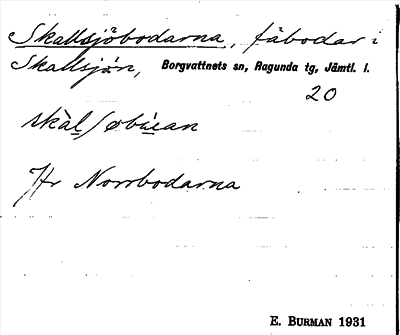 Skallsjöbodarna, fäbodar i
Skallsjön, Borgvattnets sn, Ragunda tg, Jämtl. l.
20
Jfr Norrbodarna
E. BURMAN 1931